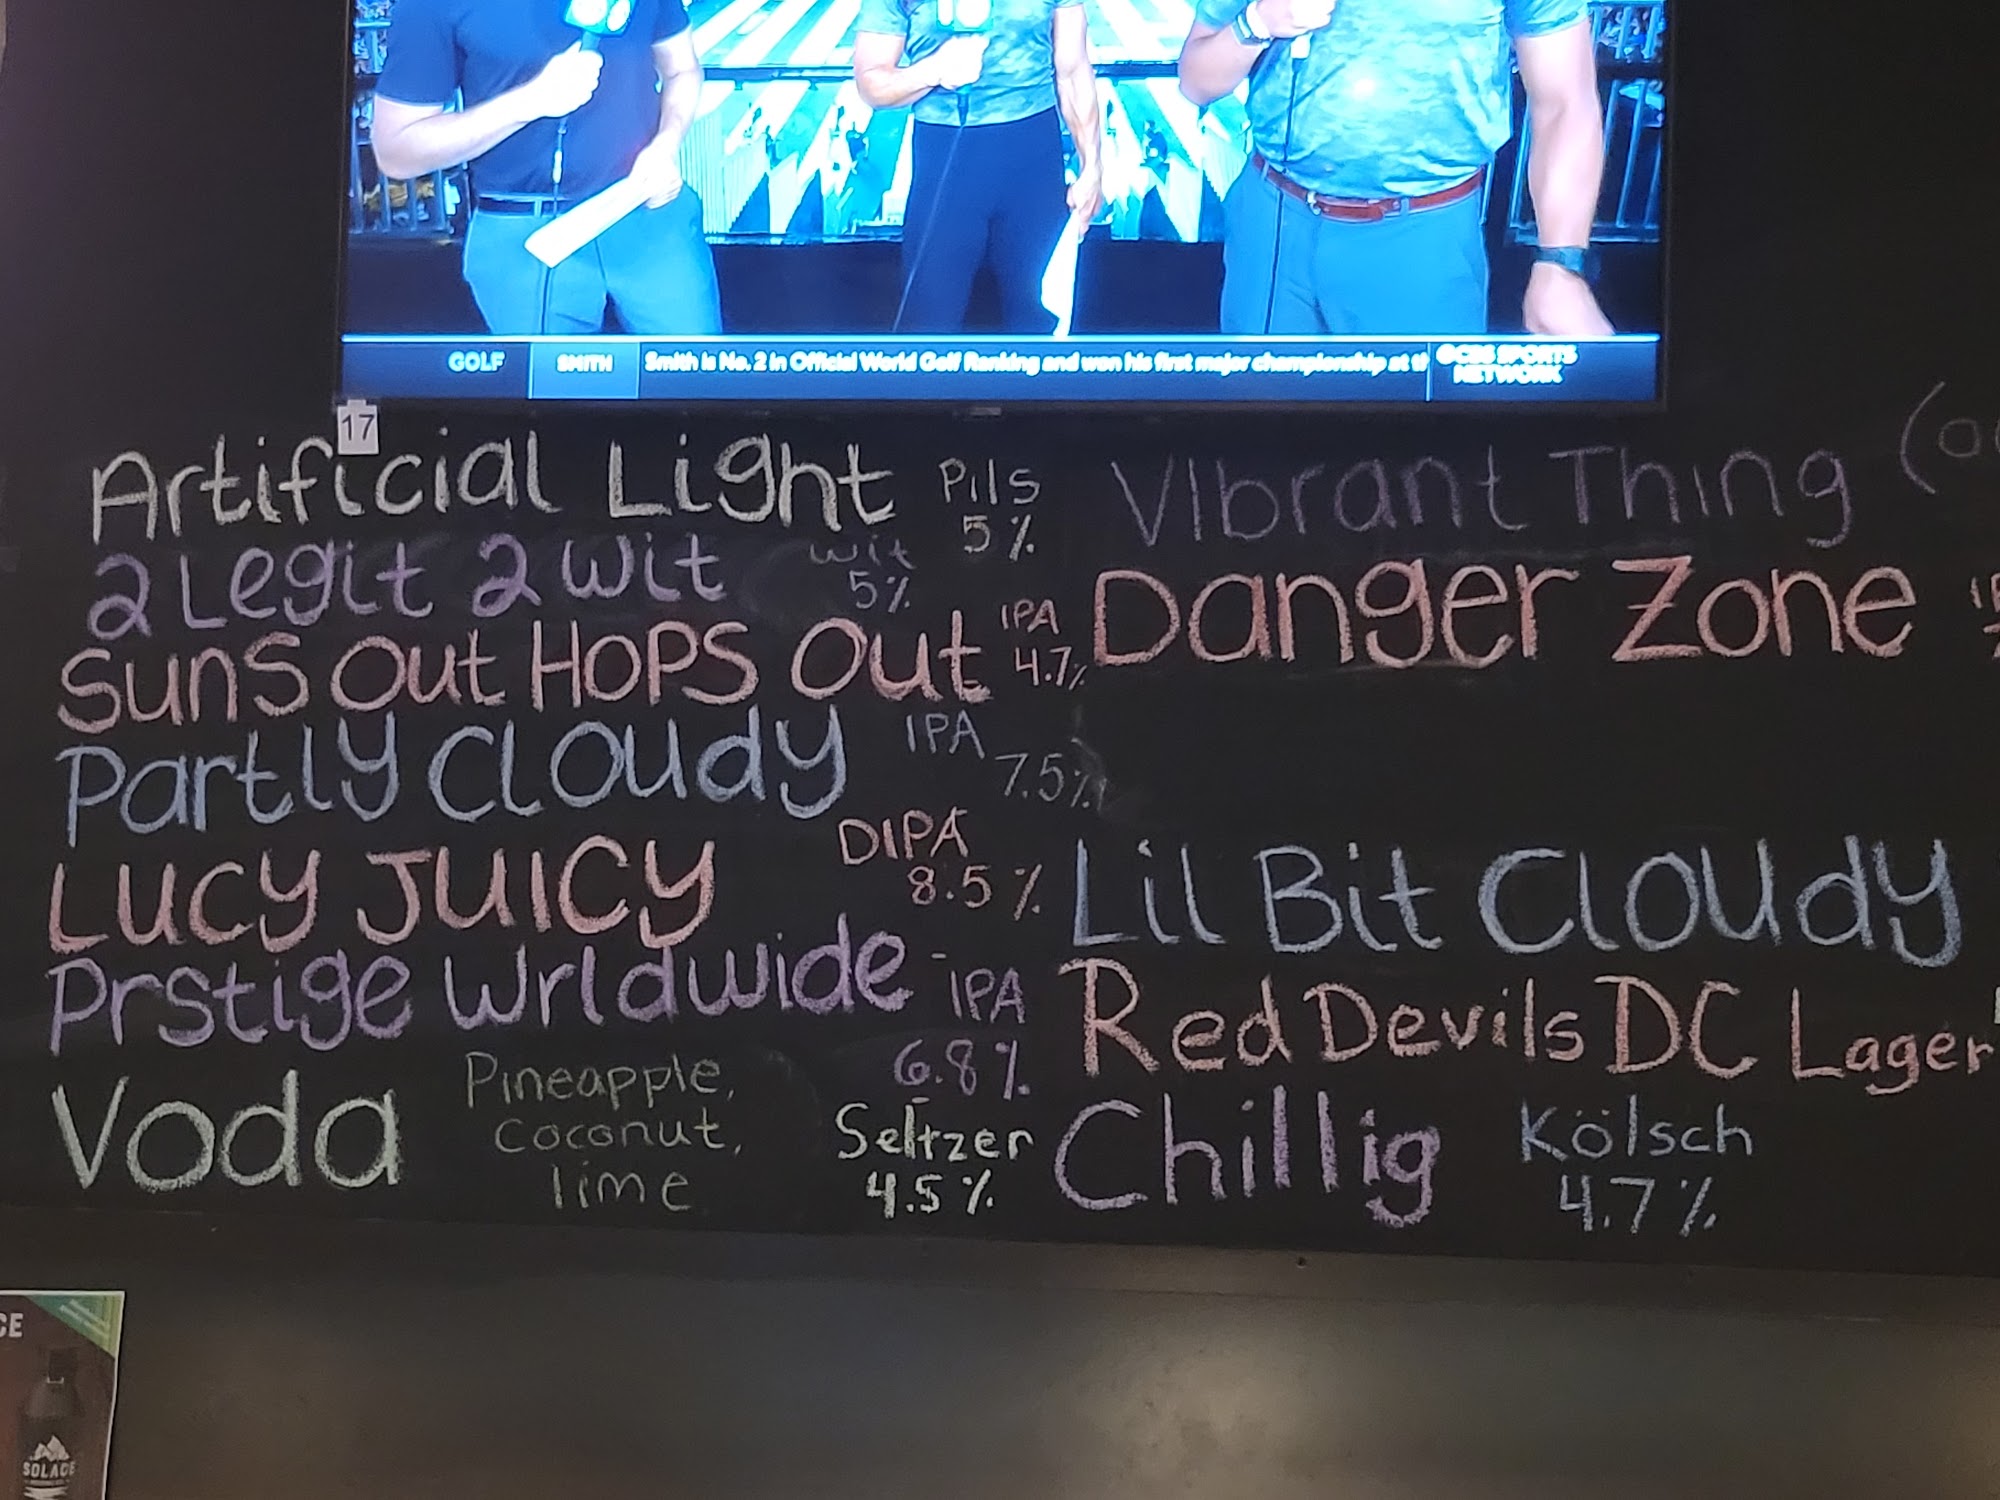 GOLF SMITH Smith is No. 2 in Official World Golf Ranking and won his first major championship at t CBS SPORTS
NETWORK
17
Artificial Light Pils
5%
2 Legit 2 Wit wit
5%
Suns Out HOPS Out IPA
4.7%
Partly Cloudy IPA
7.5%
LUCY JUICY DIPA
8.5%
Prstige Wrldwide - IPA
6.8%
Voda Pineapple, coconut, lime Seltzer
4.5%
VIbrant Thing
Danger Zone
Lil Bit Cloudy
Red Devils DC Lager
Chillig Kölsch
4.7%
CE
SOLACE